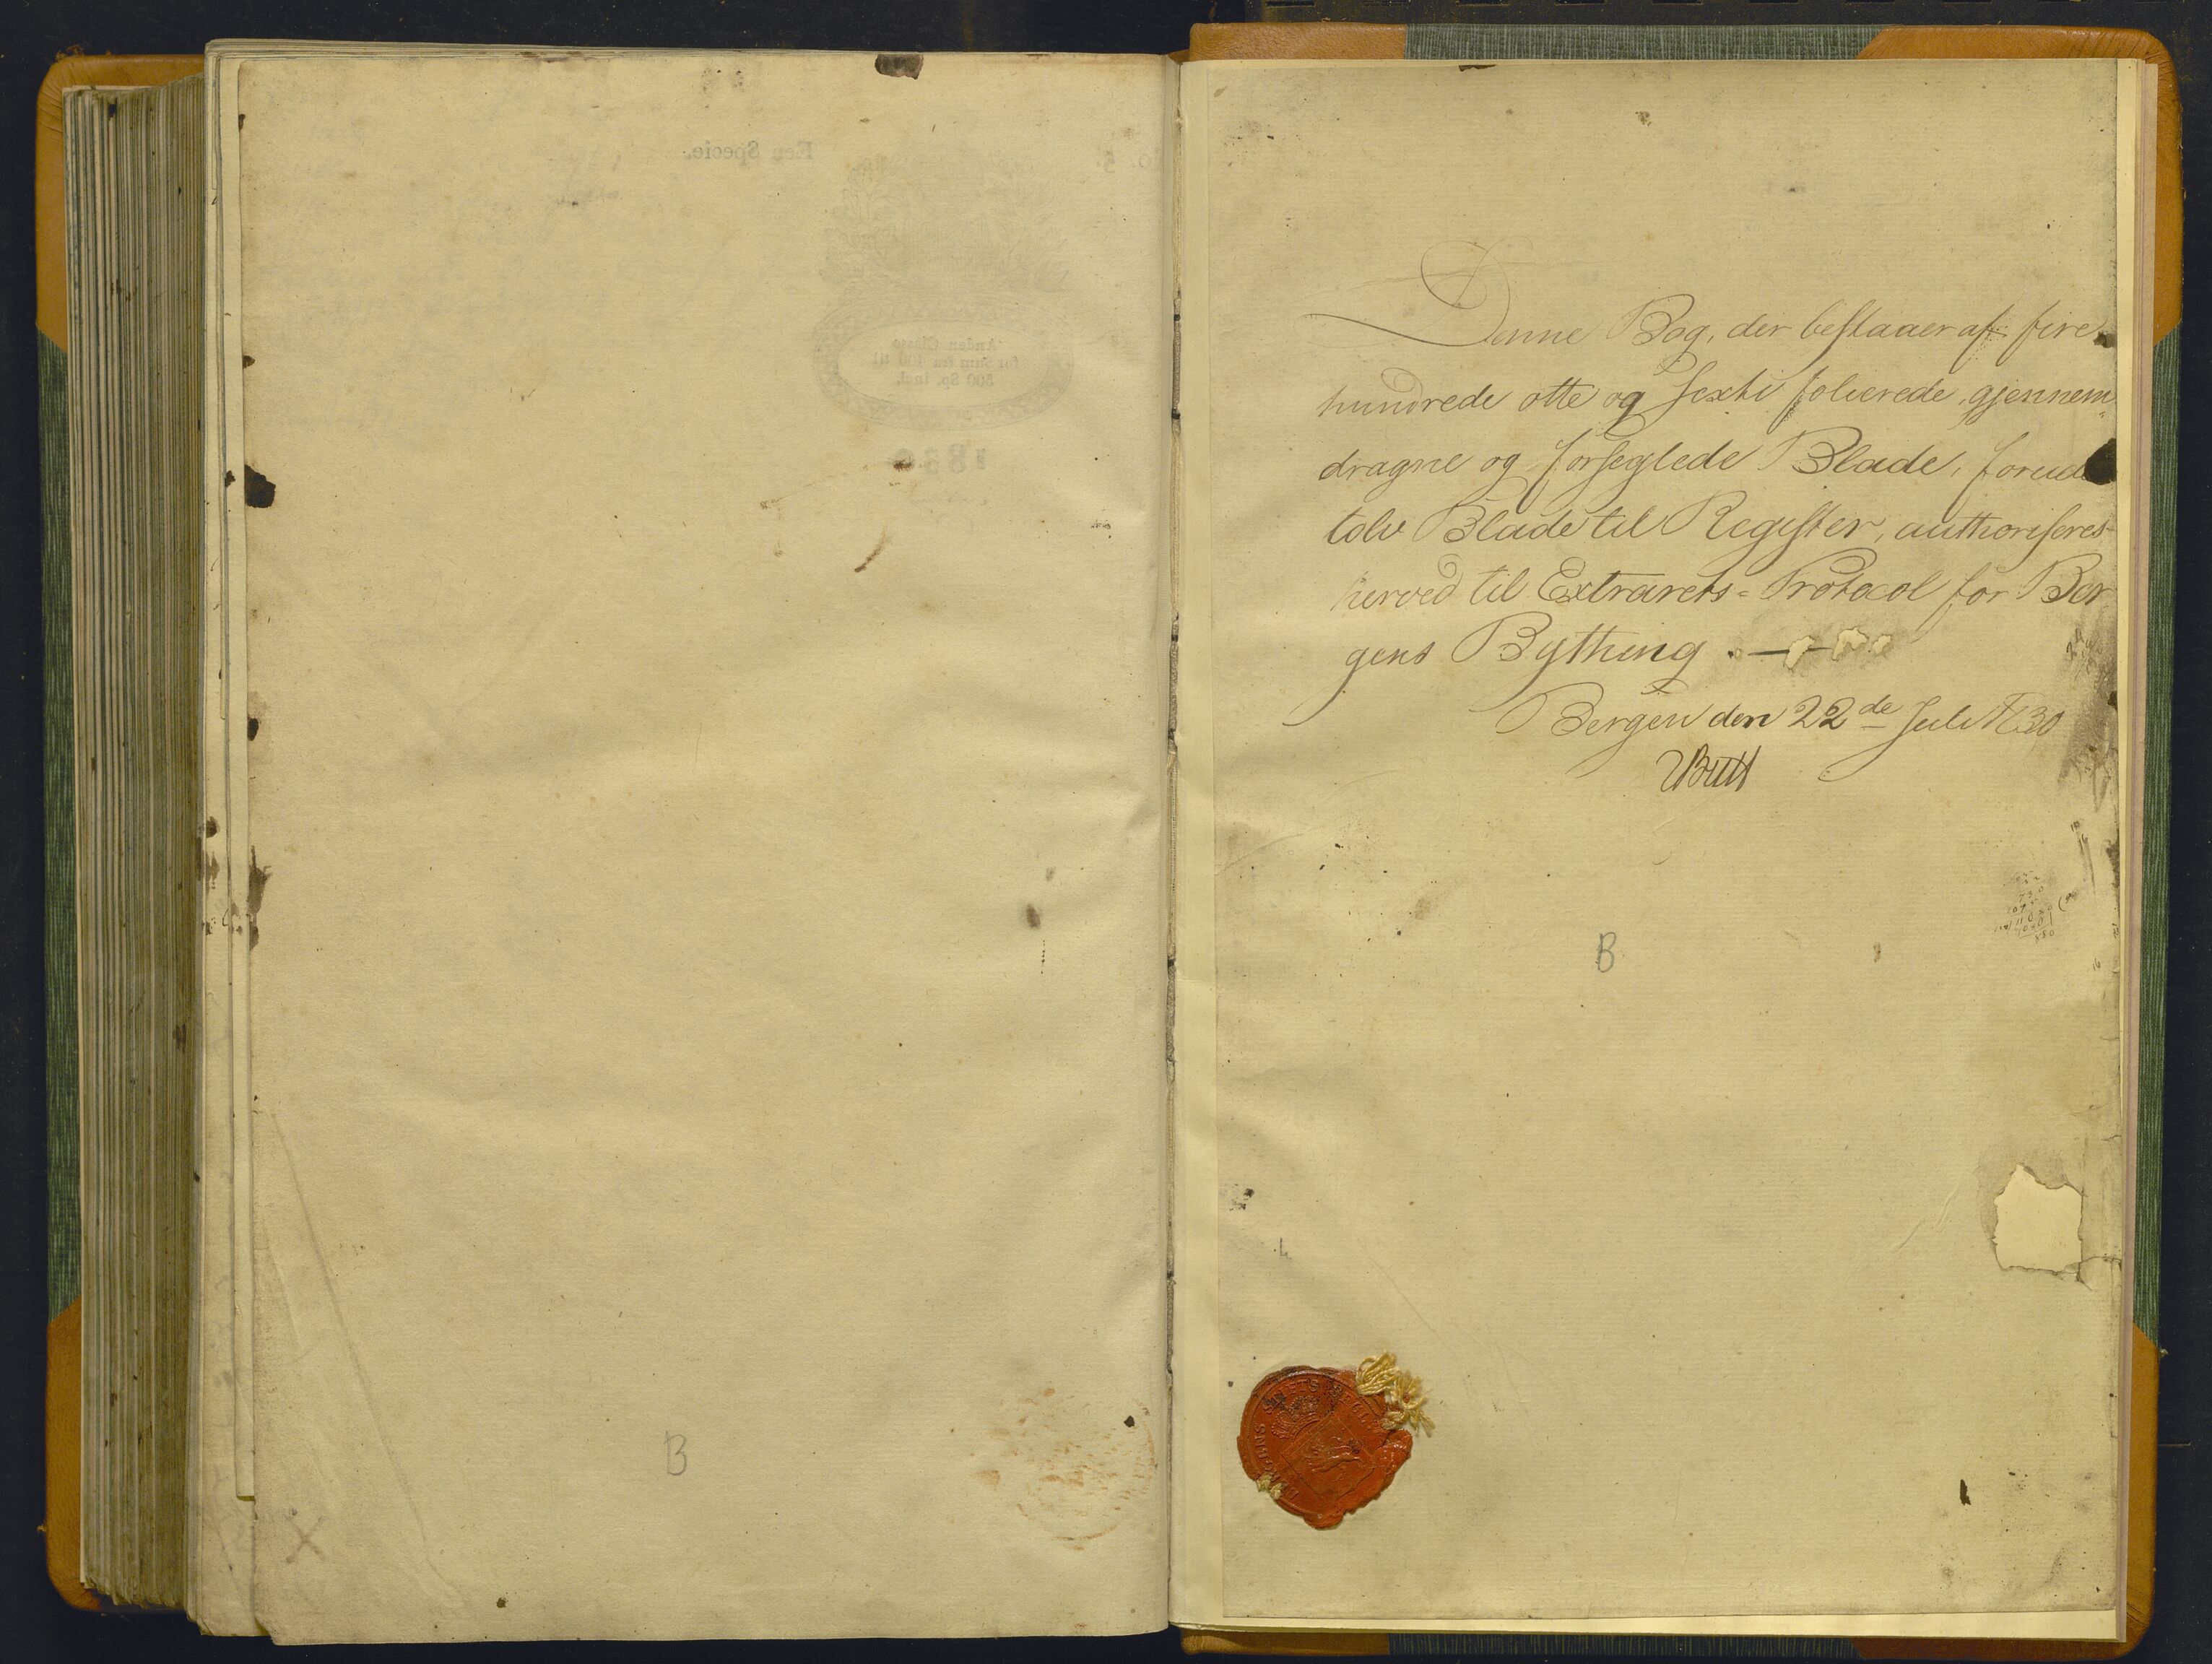 Een Specie.
No. 5
Anden Classe
for Sum fra 100 til
500 Sp. incl.
1830
B
X
Denne Bog, der bestaaer af fire
hundrede otte og sexti folierede, gjennem
dragne og forseglede Blade, forud
tolv Blade til Register, authoriseres
herved til Extrarets-Protocol for Ber
gens Bything.
Bergen den 22de Juli 1830
B